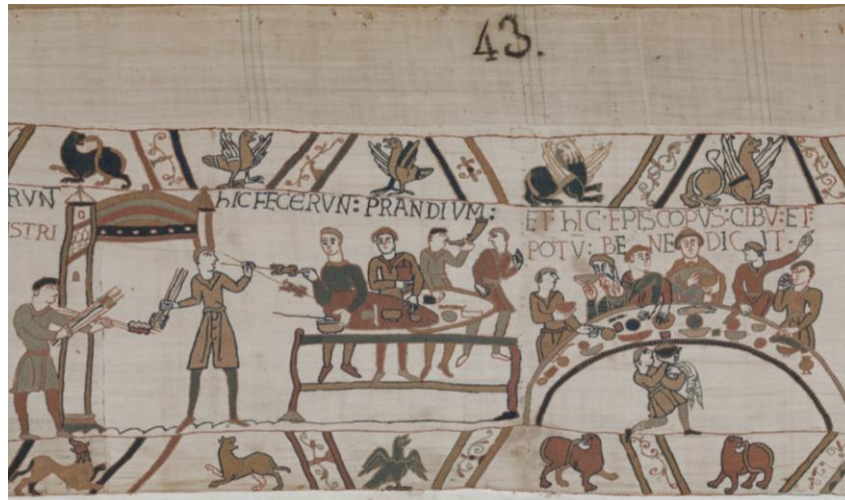 43.
RVNT
STRI
hIC FECERVN: PRANDIVM:
ET·hIC·EPISCOPVS:CIBV:ET·
POTV: BE NE DIC IT·